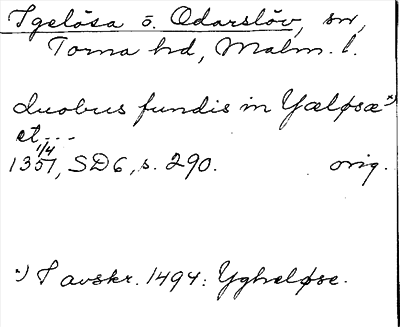 Igelösa o. Odarslöv, sn,
Torna hd, Malm. l.
duobus fundis in Yæløsæ *)
et...
1/4
1351, SD6, s. 290. orig.
*) I avskr. 1494: Yghæløse.